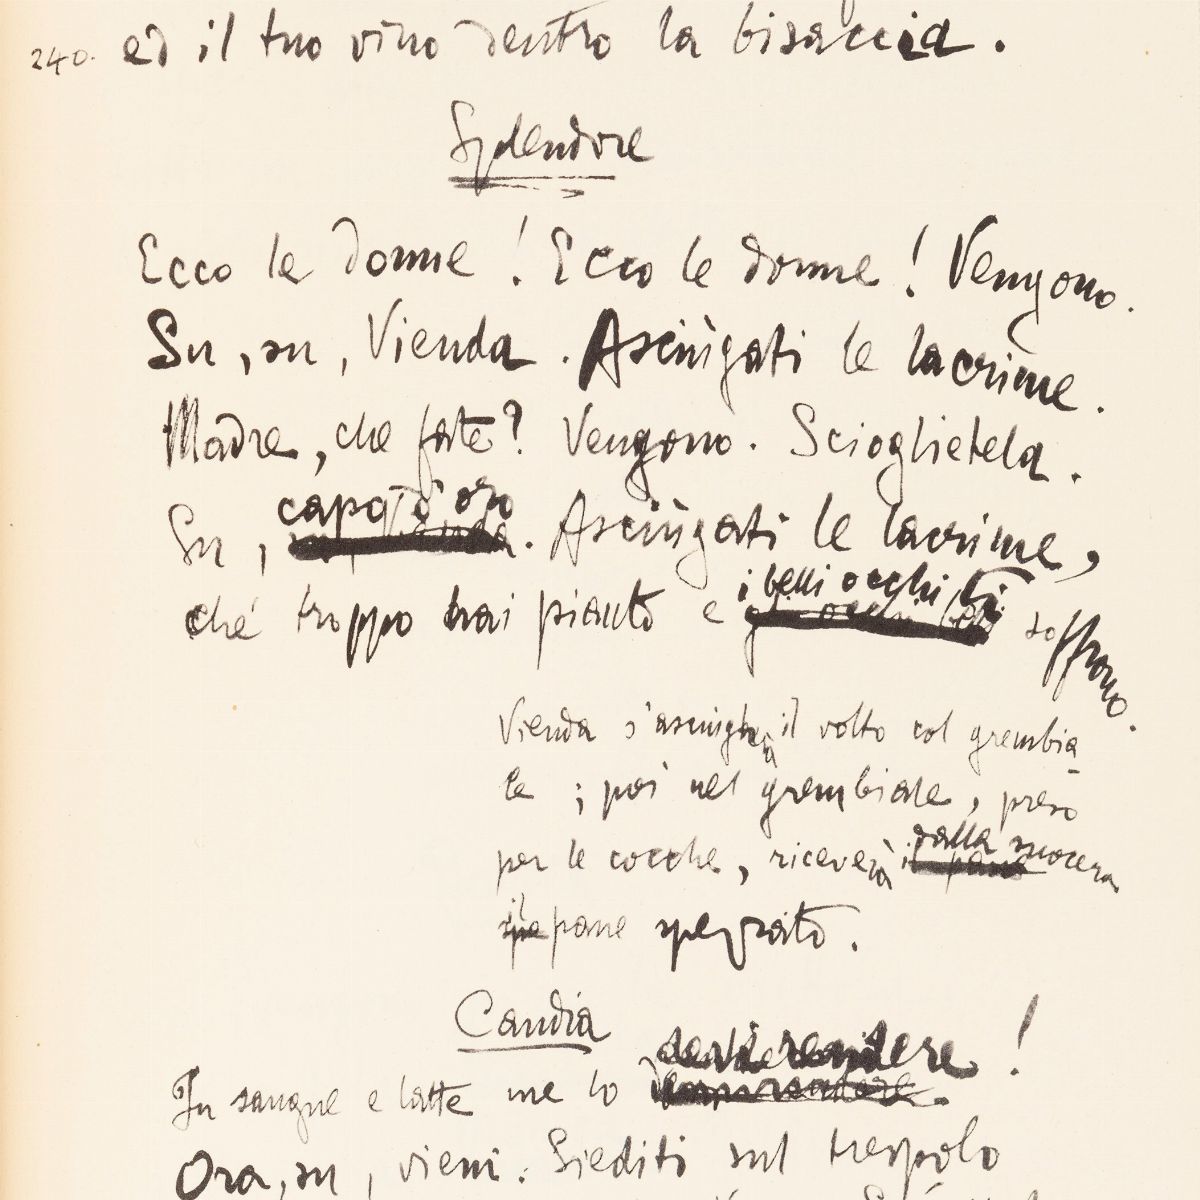 240. ed il tuo vino dentro la bisaccia.
Splendore
Ecco le donne! Ecco le donne! Vengono.
Su, su, Vienda. Asciùgati le lacrime.
Madre, che fate? Vengono. Scioglietela.
capo d'oro
Su, . Asciùgati le lacrime,
i belli occhi ti
ché troppo hai pianto e soffrono.
Vienda s'asciugherà il volto col grembia-
le; poi nel grembiale, preso
dalla suocera
per le cocche, riceverà il pane
il pane spezzato.
Candia
rendere!
In sangue e latte me lo
Ora, su, vieni. Siediti sul trespolo